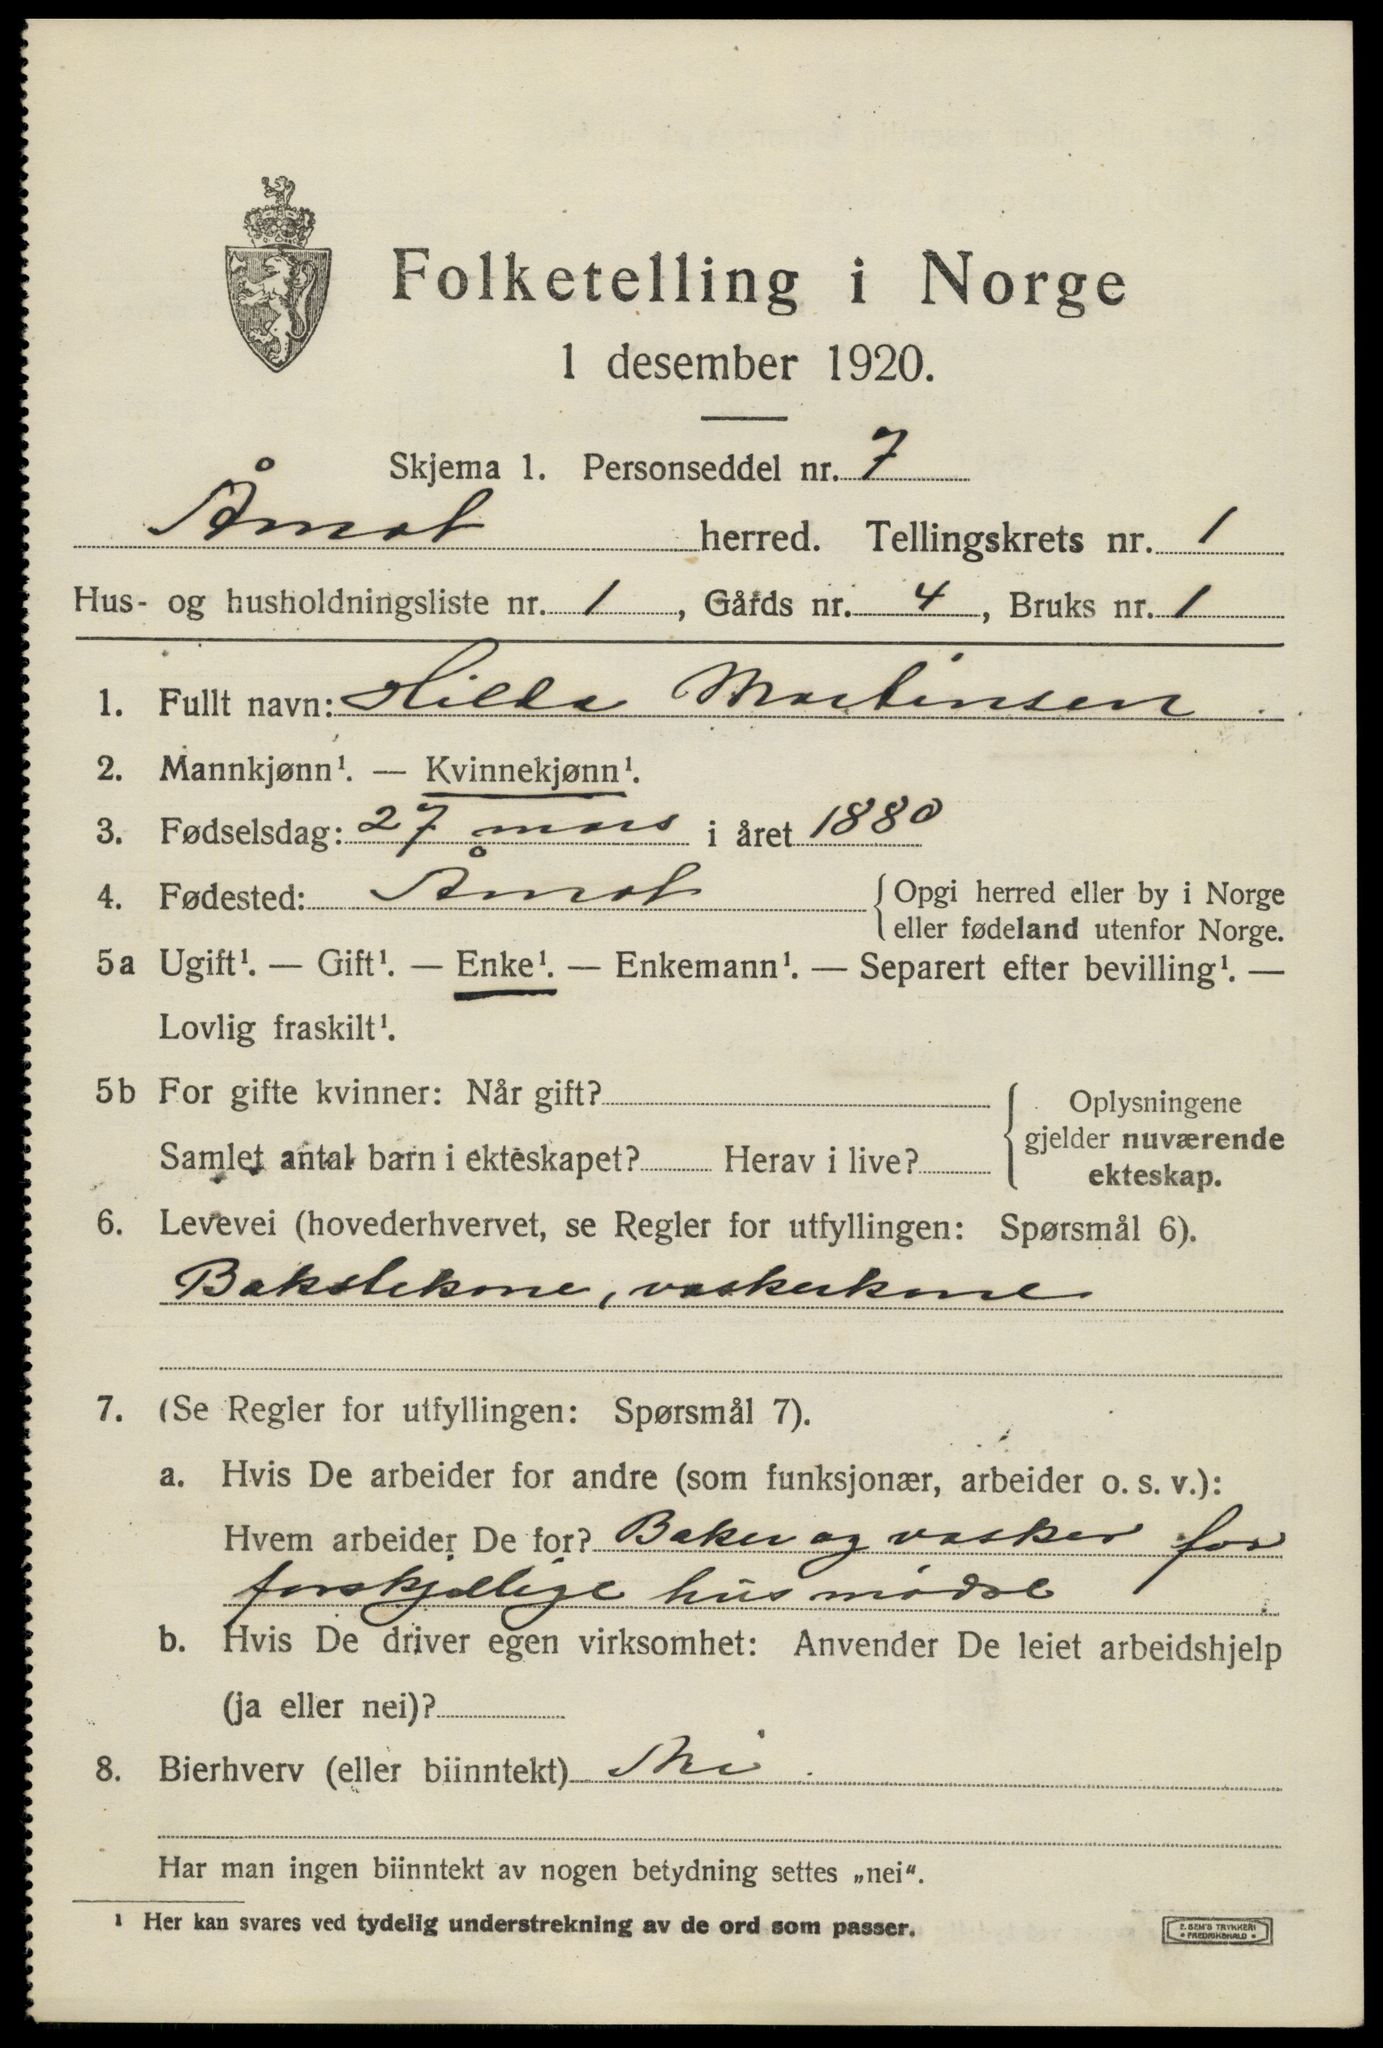 Folketelling i Norge
1 desember 1920.
Skjema 1. Personseddel nr. 7
Åmot herred. Tellingskrets nr. 1
Hus- og husholdningsliste nr. 1, Gårds nr. 4, Bruks nr. 1
1. Fullt navn: Hilda Martinsen
2. Mannkjønn¹. — Kvinnekjønn¹.
3. Fødselsdag: 27 mars i året 1880
4. Fødested: Åmot {Opgi herred eller by i Norge
eller fødeland utenfor Norge.
5a Ugift¹. — Gift¹. — Enke¹. — Enkemann¹. — Separert efter bevilling¹. —
Lovlig fraskilt¹.
5b For gifte kvinner: Når gift?
Samlet antal barn i ekteskapet? Herav i live?
Oplysningene
gjelder nuværende
ekteskap.
6. Levevei (hovederhvervet, se Regler for utfyllingen: Spørsmål 6).
Bakstekone, vaskerkone
7. (Se Regler for utfyllingen: Spørsmål 7).
a. Hvis De arbeider for andre (som funksjonær, arbeider o. s. v.):
Hvem arbeider De for? Baker og vasker for
forskjellige husmødre
b. Hvis De driver egen virksomhet: Anvender De leiet arbeidshjelp
(ja eller nei)?
8. Bierhverv (eller biinntekt) Nei
Har man ingen biinntekt av nogen betydning settes „nei“.
¹ Her kan svares ved tydelig understrekning av de ord som passer.
E. SEM'S TRYKKERI
• FREDRIKSHALD •